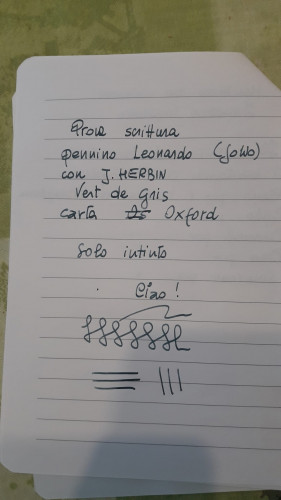 Prova scrittura
pennino Leonardo (JoWo)
con J. HERBIN
Vert de Gris
carta Oxford
Solo intinto
Ciao!